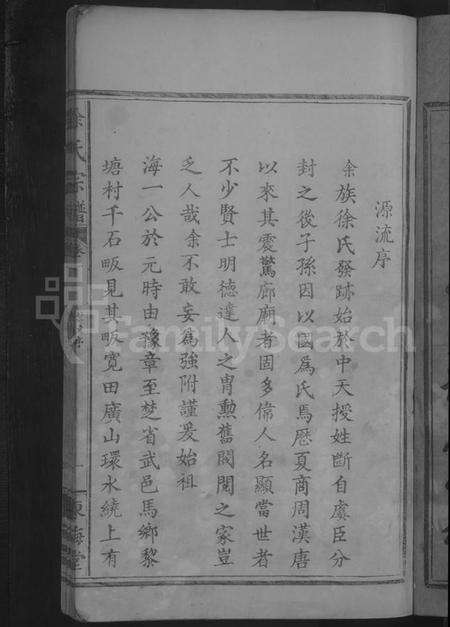 源流序
余族徐氏發跡始於中天授姓斷自虞臣分
封之後子孫因以國為氏焉歷夏商周漢唐
以來其震驚廊廟者固多偉人名顯當世者
不少賢士明德達人之胄勲舊閥閱之家豈
乏人哉余不敢妄為強附謹爰始祖
海一公於元時由豫章至楚省武邑馬鄉黎
塘村千石畈見其畈寬田廣山環水繞上有
徐氏宗譜
一
東海堂
FamilySearch